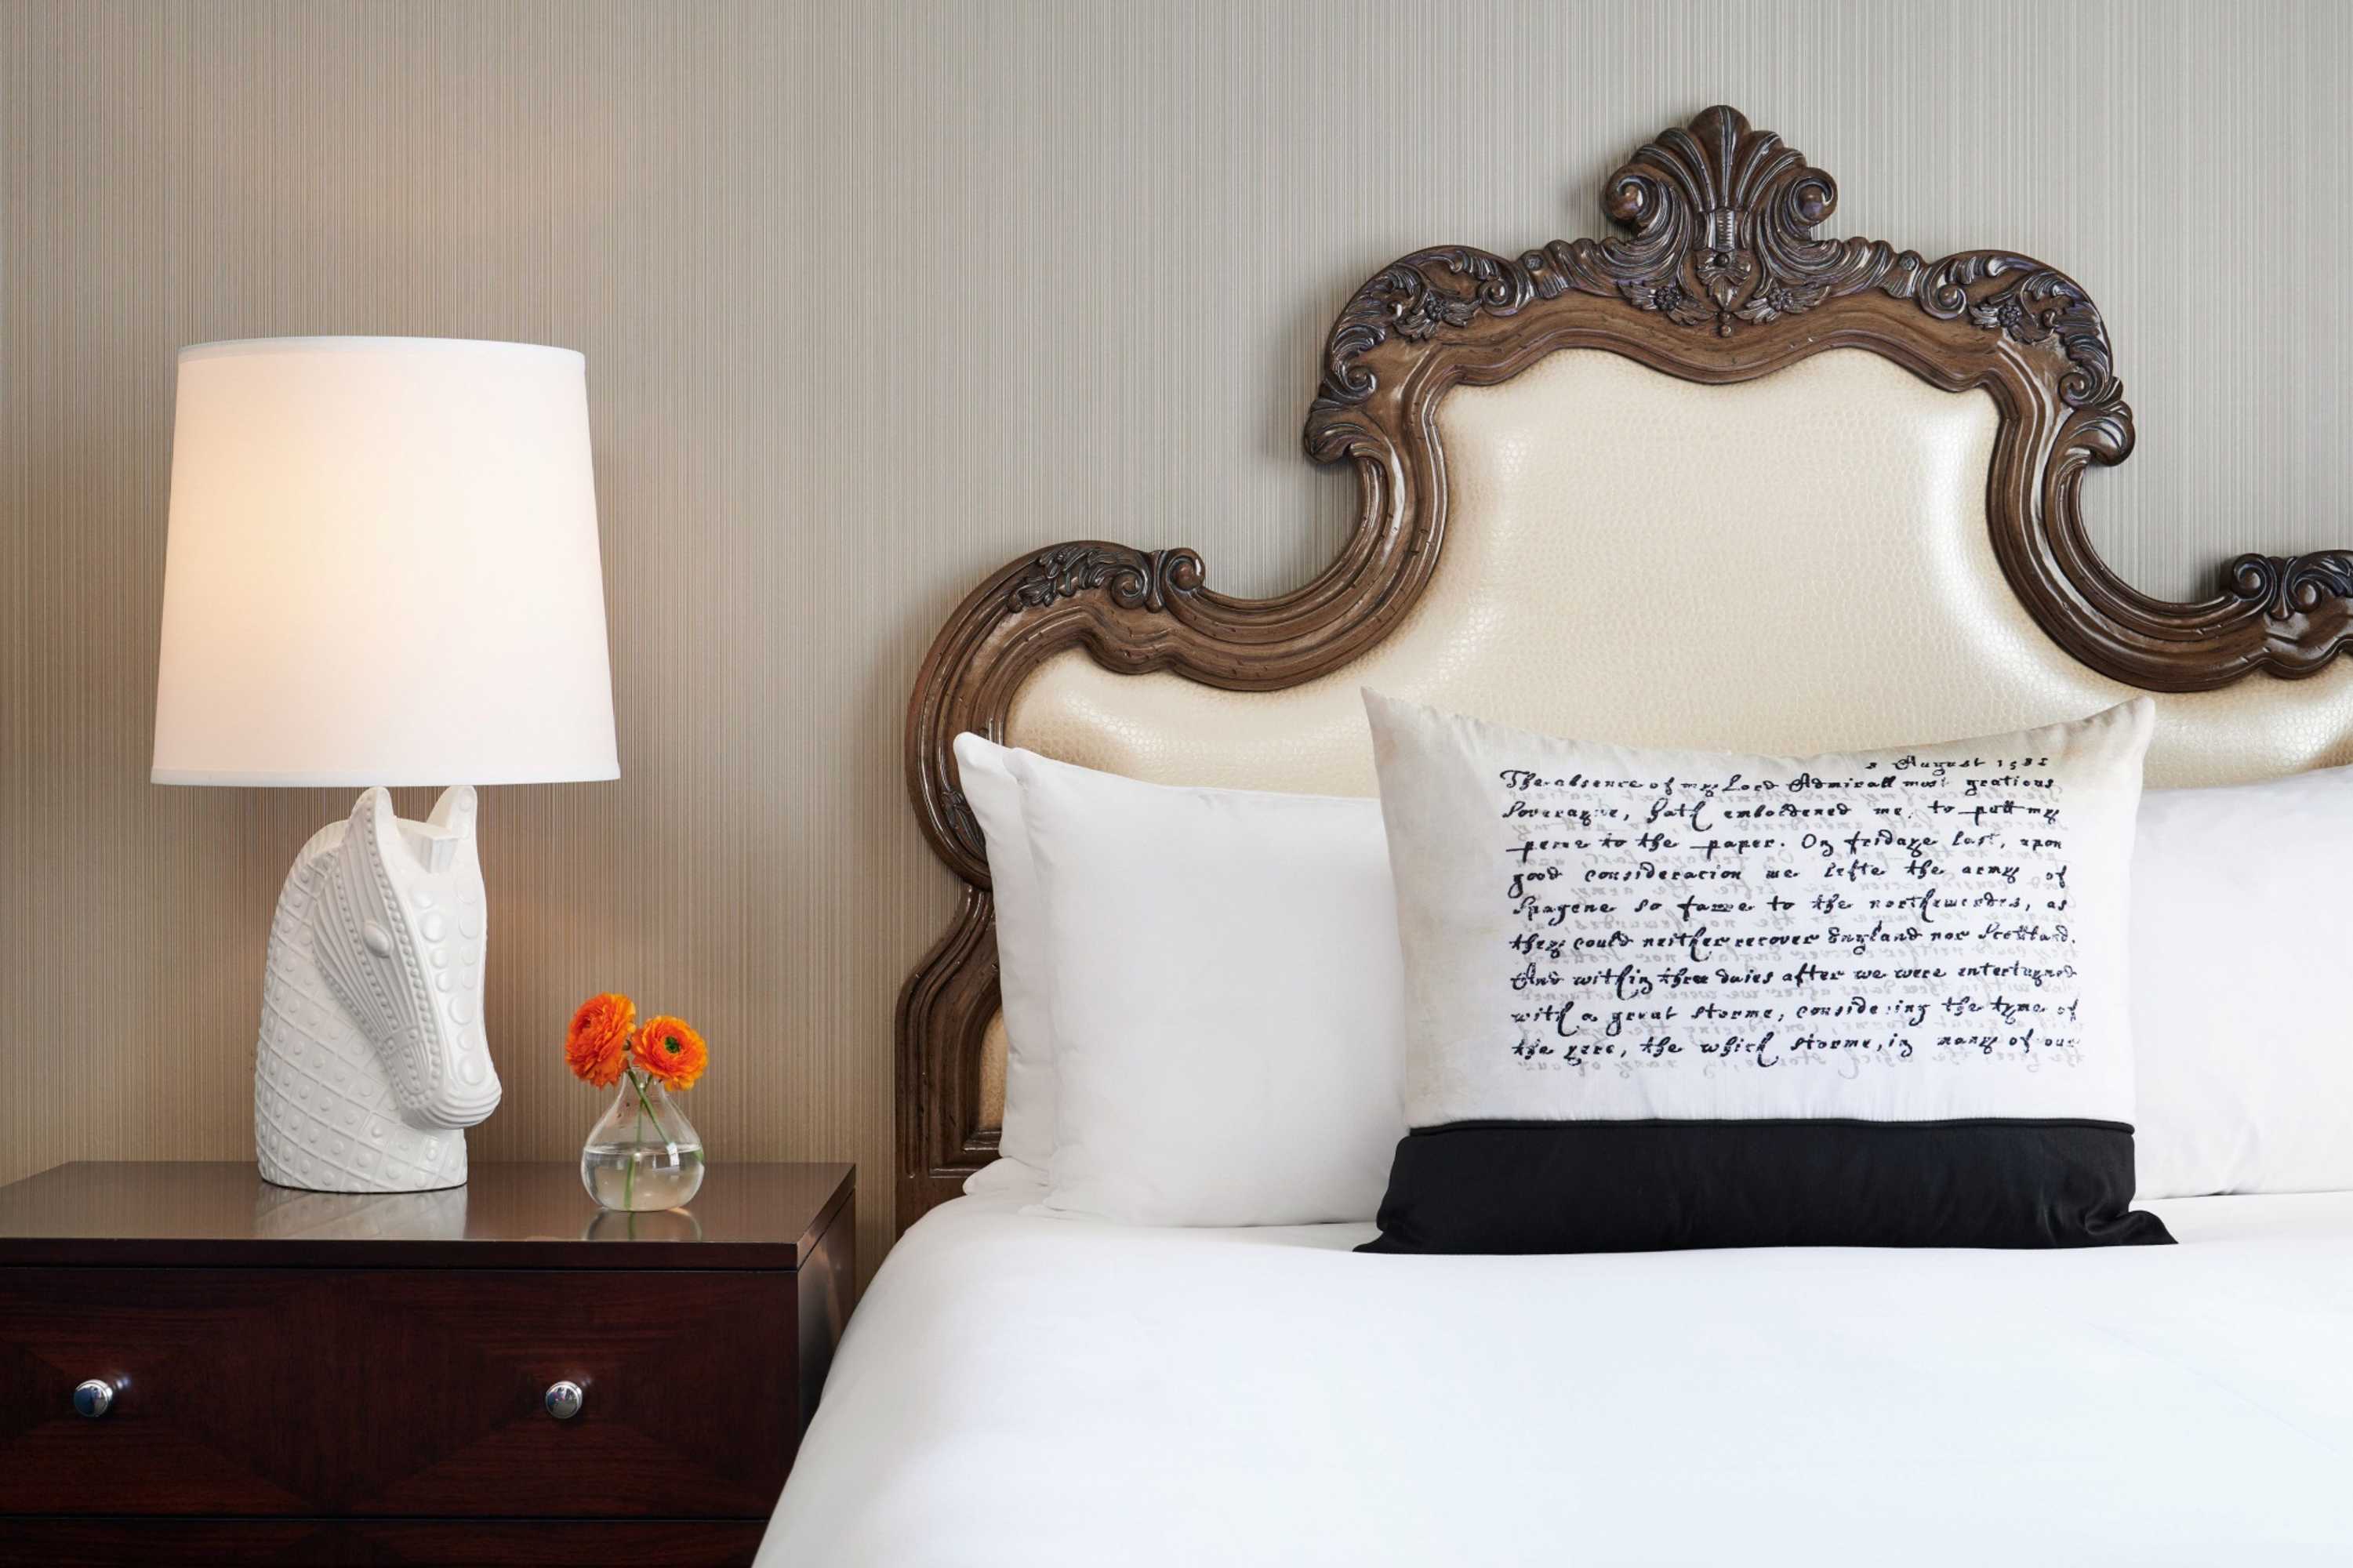 8 August 1588
The absence of my Lord Admirall most gratious
Soverayne, hath emboldened me to putt my
penne to the paper. On fridaye last, upon
good consideracion we lefte the army of
Spayene so farre to the northewardes, as
they could neither recover England nor Scottland.
And within three daies after we were entertayned
with a great storme, considering the tyme of
the yere, the which storme, in many of our